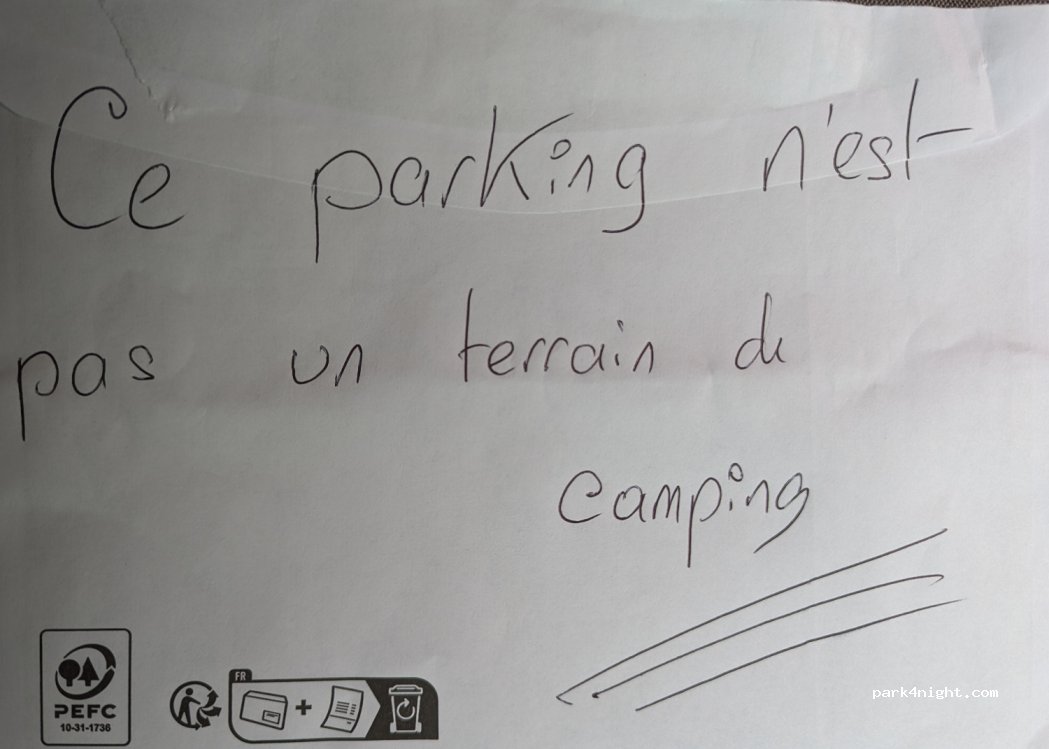 Ce parking n'est
pas un terrain de
camping
PEFC
10-31-1736
FR
park4night.com